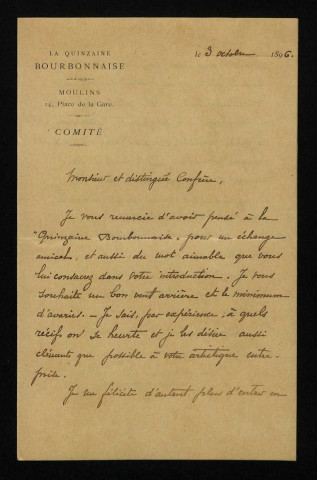 LA QUINZAINE
BOURBONNAISE
MOULINS
14, Place de la Gare.
COMITÉ
le 3 octobre 1896.
Monsieur et distingué Confrère,
Je vous remercie d'avoir pensé à la
"Quinzaine Bourbonnaise" pour un échange
amical, et aussi du mot aimable que vous
lui consacrez dans votre introduction. Je vous
souhaite un bon vent arrière et le minimum
d'avaries. — Je sais, par expérience, à quels
récifs on se heurte et je les désire aussi
cléments que possible à votre artistique entre-
prise.
Je me félicite d'autant plus d'entrer en